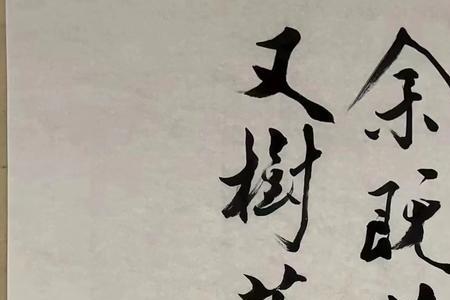 余既
又樹